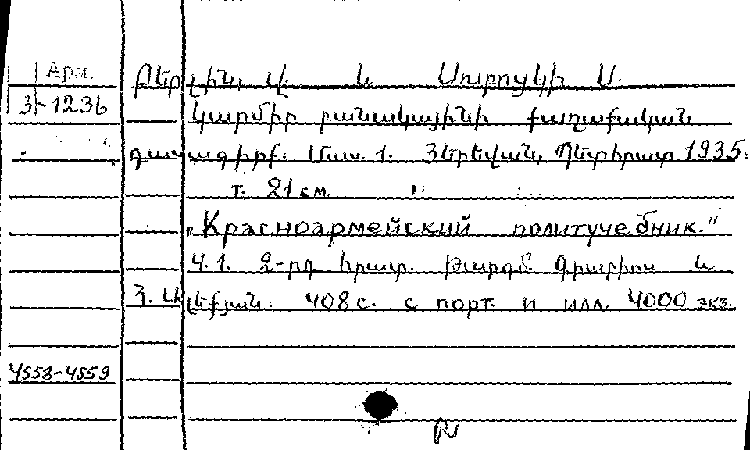 Арм.
3-1236
Բերլին, Վ. և Սուրոլկի Ս.
Կարմիր բանակայինի քաղաքական
դասագիրք. Մաս. 1. Յերեվան, Պետհրատ 1935.
т. 21 см.
„Красноармейский политучебник."
Ч.1. 2-րդ հրատ. թարգմ
408 с. с порт. и илл. 4000 экз.
4558-4559